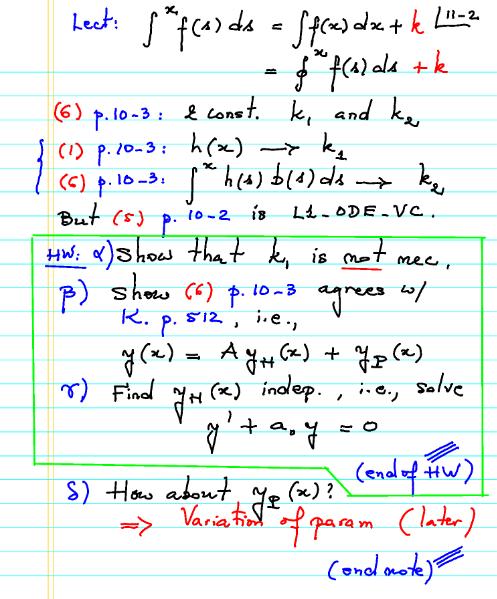 Lect: ∫^x f(s) ds = ∫ f(x) dx + k 11-2
= ∮^x f(s) ds + k
(6) p. 10-3: 2 const. k₁ and k₂
(1) p. 10-3: h(x) → k₁
(6) p. 10-3: ∫^x h(s) b(s) ds → k₂
But (5) p. 10-2 is L1-ODE-VC.
HW: α) Show that k₁ is not nec.
β) Show (6) p. 10-3 agrees w/
K. p. 512, i.e.,
y(x) = A y_H(x) + y_P(x)
γ) Find y_H(x) indep., i.e., solve
y' + a₀ y = 0
(end of HW)
δ) How about y_P(x)?
=> Variation of param (later)
(end note)